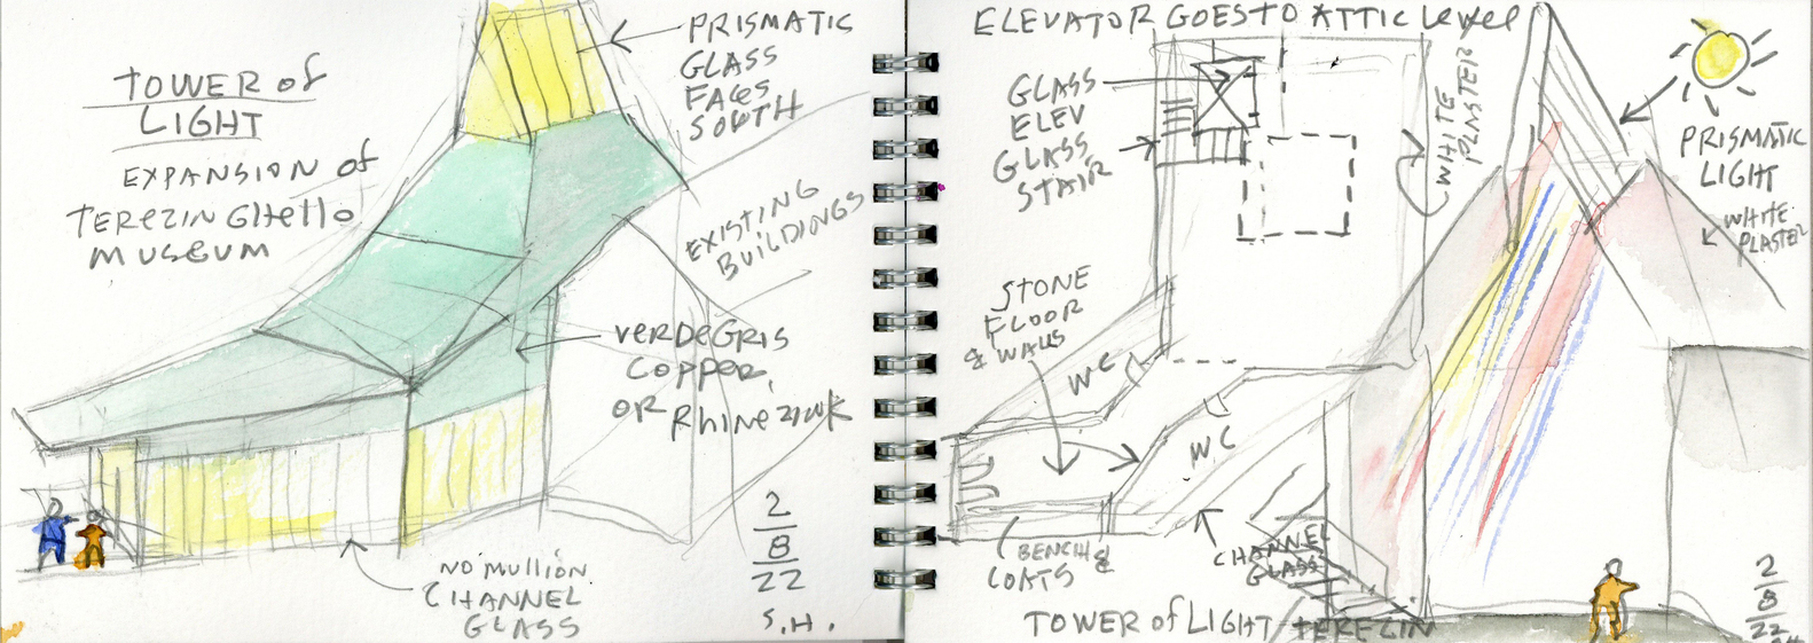 TOWER of
LIGHT
EXPANSION of
TEREZIN GHettO
MUSEUM
PRISMATIC
GLASS
FACES
SOUTH
EXISTING
BUILDINGS
VERDEGRIS
COPPER,
OR Rhinezink
NO MULLION
CHANNEL
GLASS
2
8
22
S.H.
ELEVATOR GOES TO ATTIC Level
GLASS
ELEV
GLASS
STAIR
WHITE
PLASTER
PRISMATIC
LIGHT
WHITE
PLASTER
STONE
FLOOR
& WALLS
WC
WC
BENCH &
COATS
CHANNEL
GLASS
TOWER of LIGHT TEREZIN
2
8
22